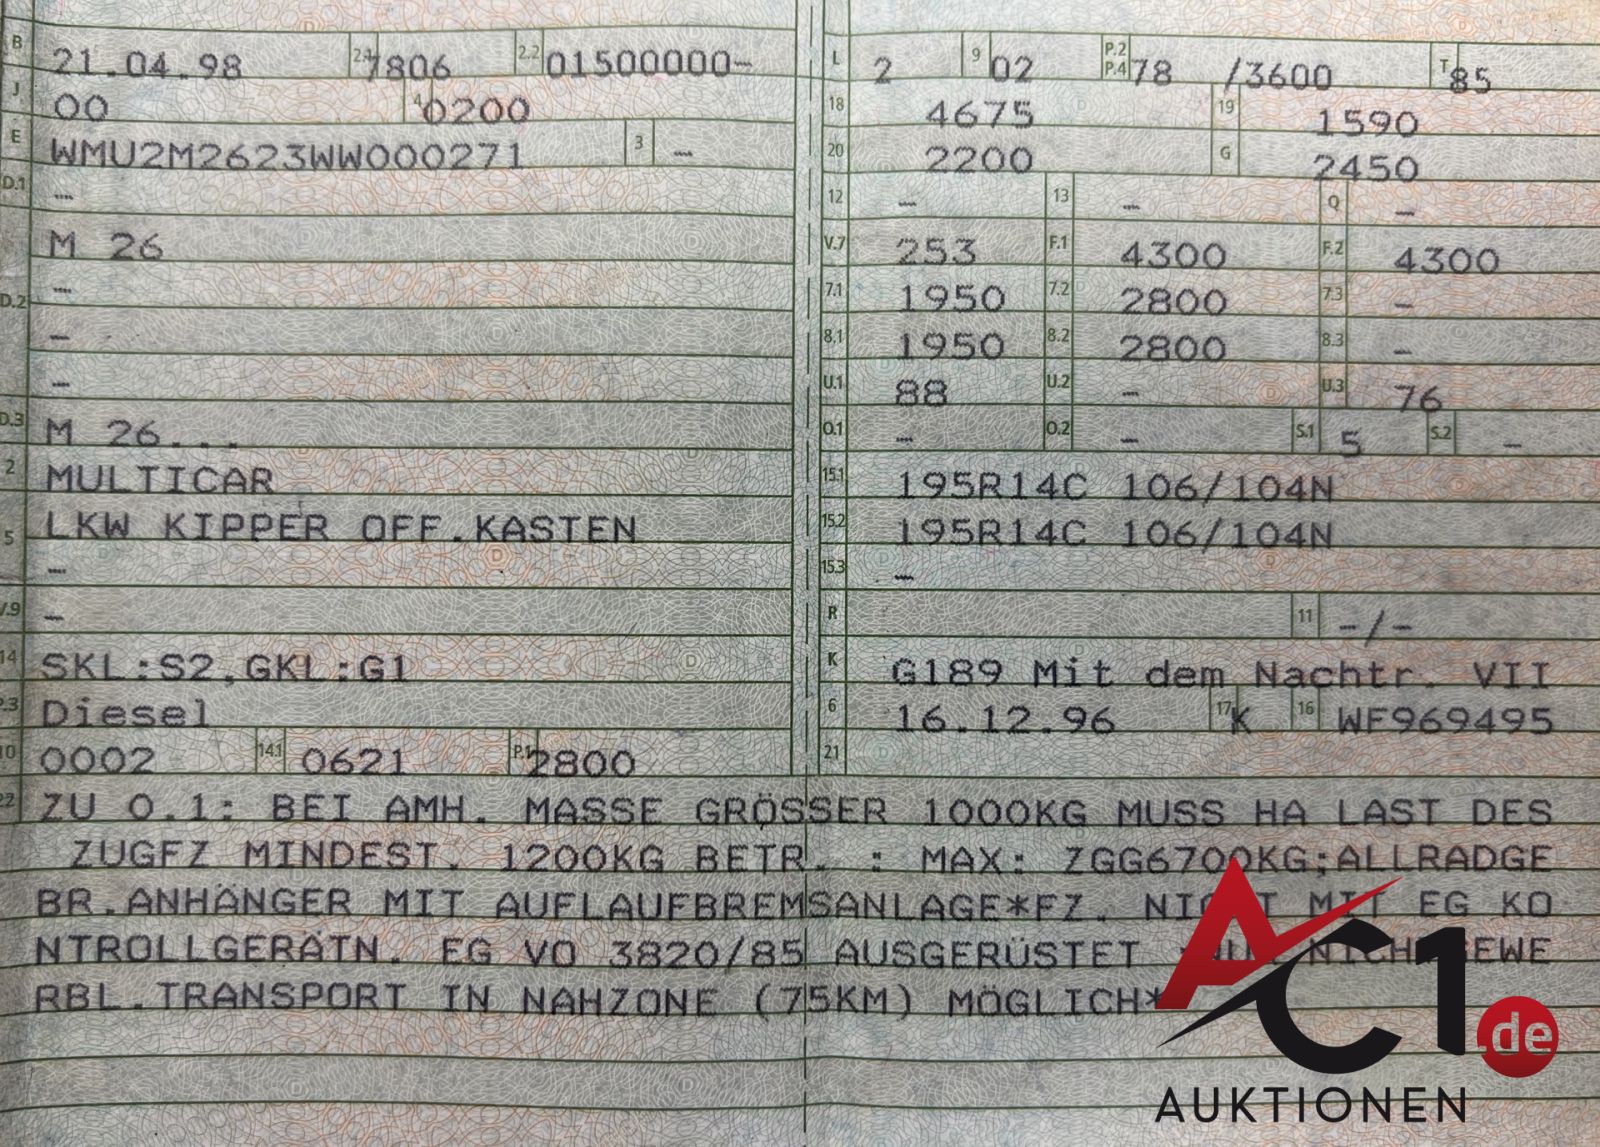 B 21.04.98 2.1 7806 2.2 01500000-
J 00 4 0200
E WMU2M2623WW000271 3 -
D.1 -
M 26
-
D.2 -
-
D.3 M 26...
2 MULTICAR
5 LKW KIPPER OFF.KASTEN
-
V.9 -
14 SKL:S2,GKL:G1
P.3 Diesel
10 0002 14.1 0621 P.1 2800
L 2 9 02 P.2 P.4 78 /3600 T 85
18 4675 19 1590
20 2200 G 2450
12 - 13 - Q -
V.7 253 F.1 4300 F.2 4300
7.1 1950 7.2 2800 7.3 -
8.1 1950 8.2 2800 8.3 -
U.1 88 U.2 - U.3 76
O.1 - O.2 - S.1 5 S.2 -
15.1 195R14C 106/104N
15.2 195R14C 106/104N
15.3 -
R 11 -/-
K G189 Mit dem Nachtr. VII
6 16.12.96 17 K 16 WF969495
21
22 ZU O.1: BEI AMH. MASSE GRÖSSER 1000KG MUSS HA LAST DES
ZUGFZ MINDEST. 1200KG BETR. : MAX: ZGG6700KG;ALLRADGE
BR.ANHÄNGER MIT AUFLAUFBREMSANLAGE*FZ. NICHT MIT EG KO
NTROLLGERÄTN. EG VO 3820/85 AUSGERÜSTET NICHT GEWE
RBL.TRANSPORT IN NAHZONE (75KM) MÖGLICH*
AC1.de
AUKTIONEN